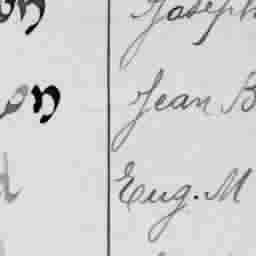 Joseph
on Jean B
Eug. M